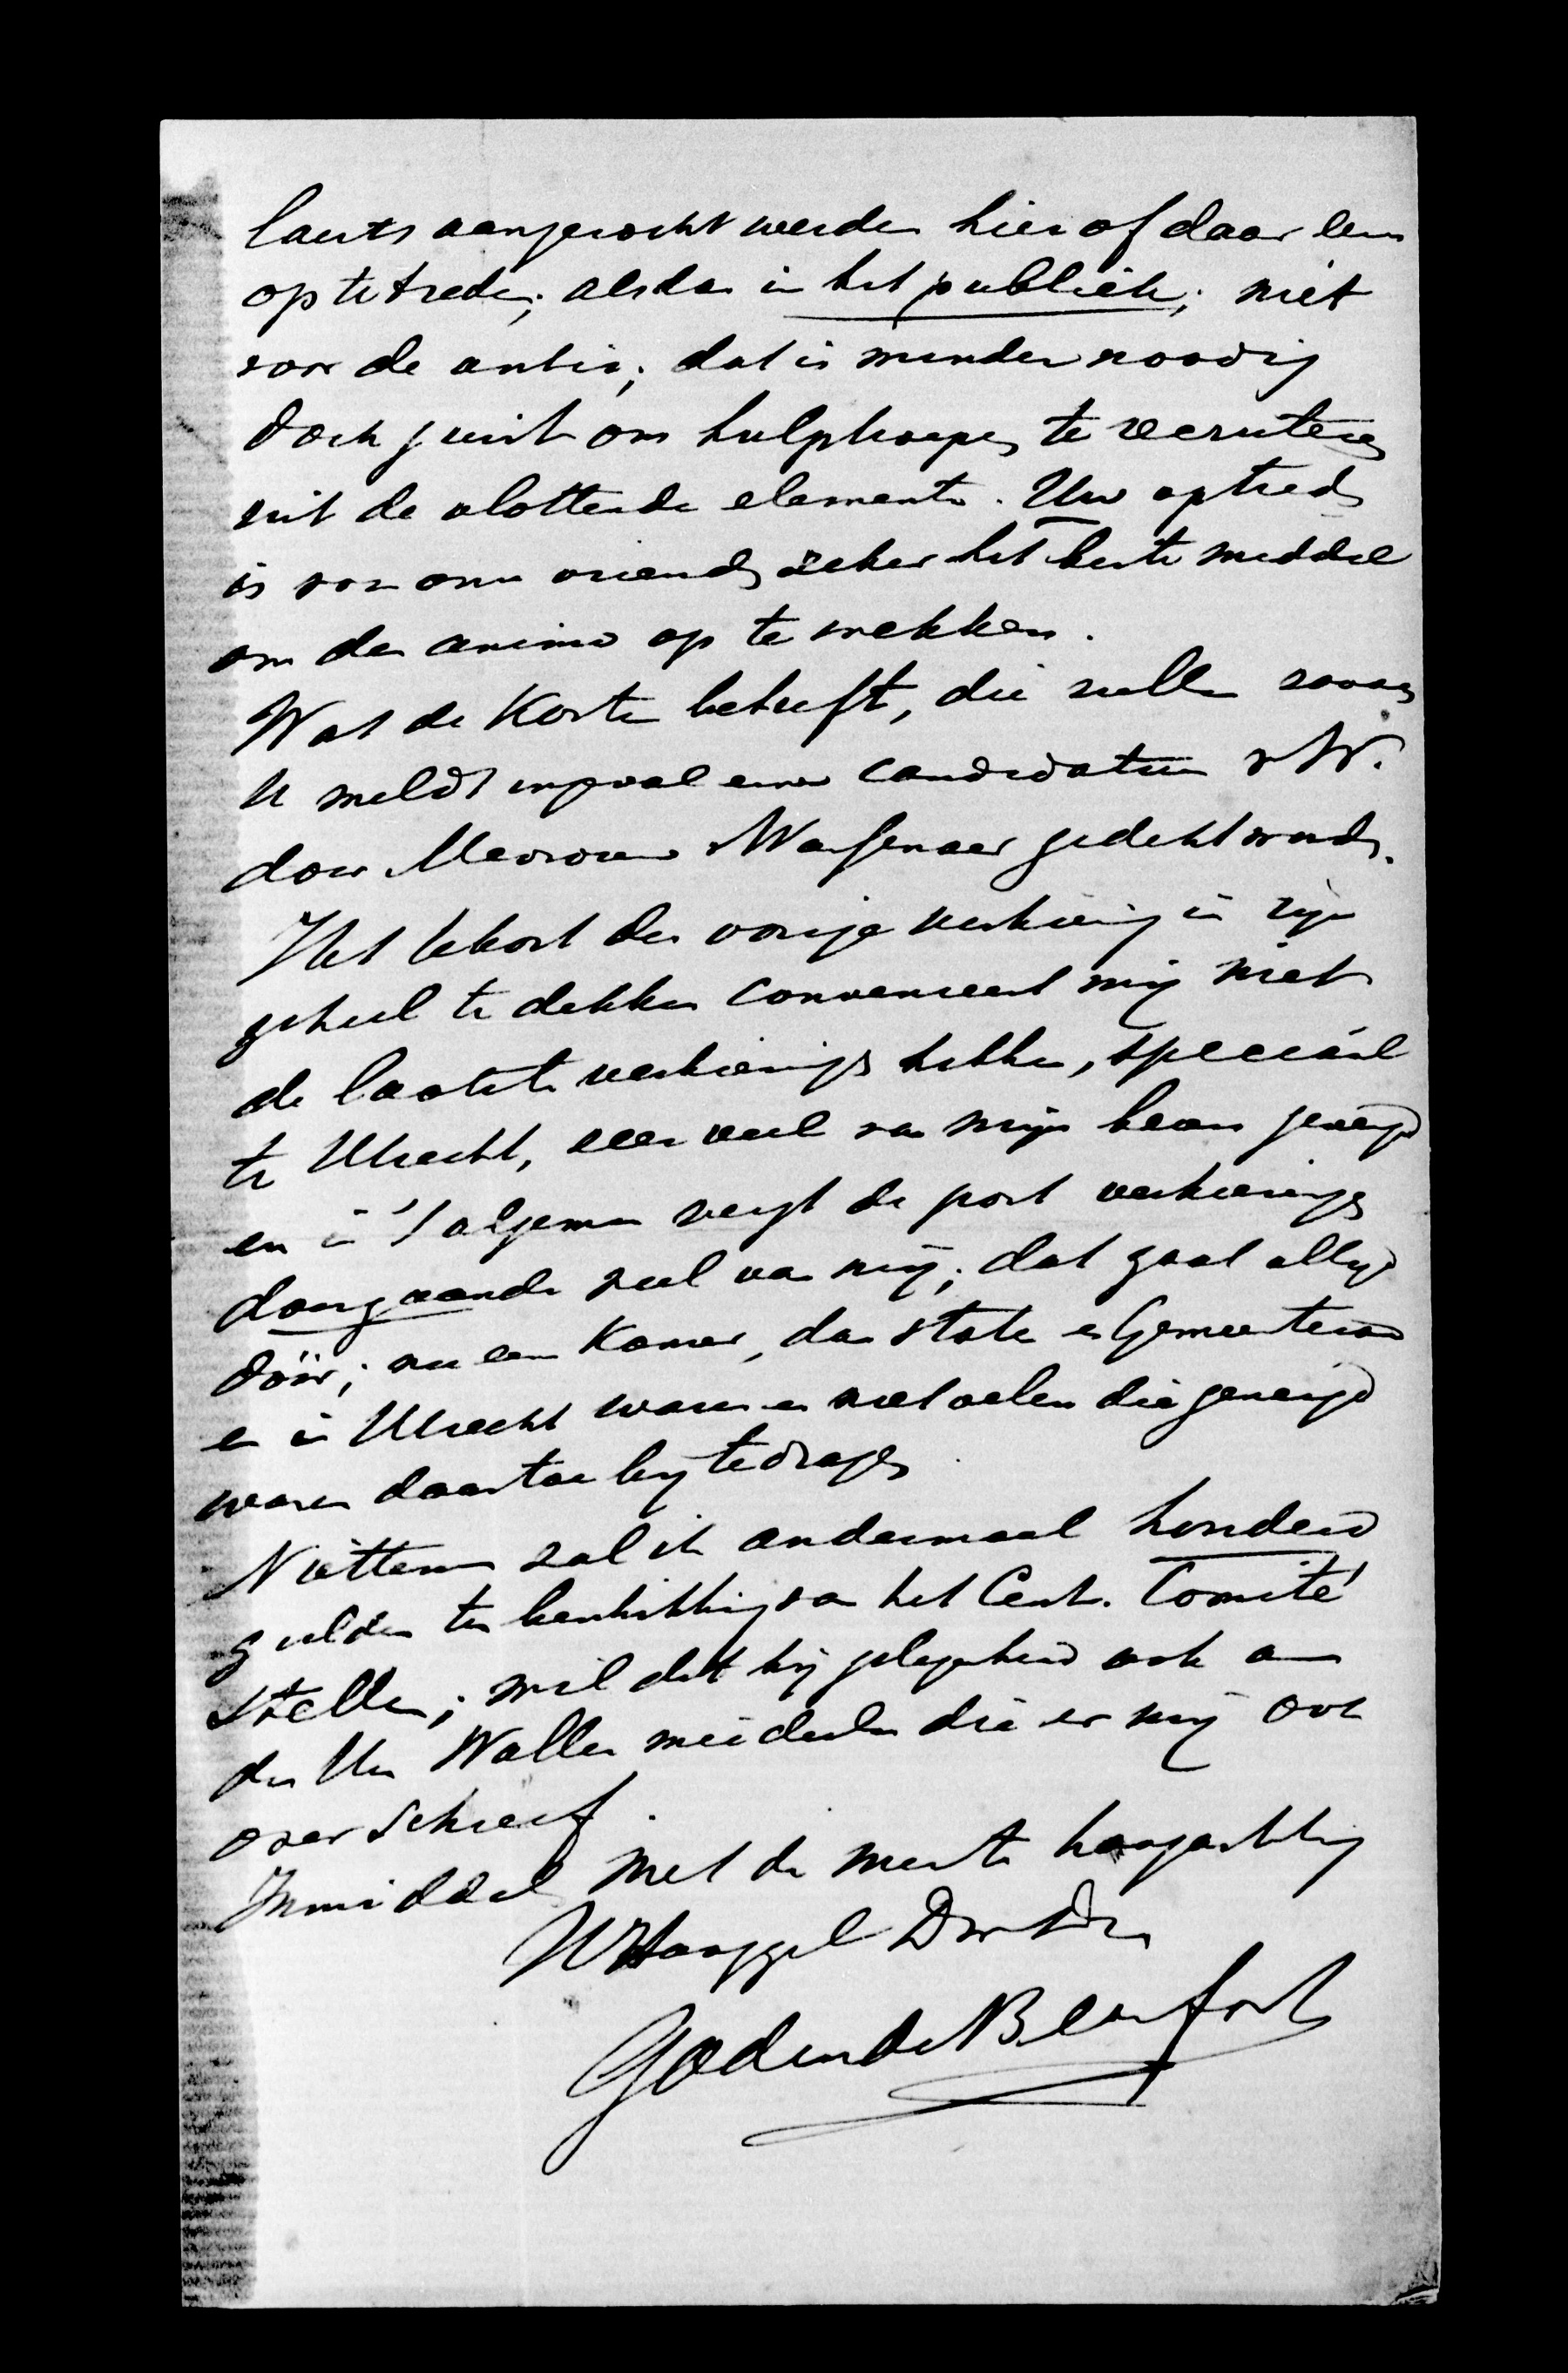 laats aangezocht werden hier of daar eens
op te treden; alsdan in het publiek; niet
voor de antir; dat is minder noodig
doch juist om hulptroepen te recruteren
uit de vlottende elementen. Uw optreden
is voor onze vrienden zeker het beste middel
om den animo op te wekken.
Wat de Kosten betreft, die zullen zooals
U meldt ingeval eener Candidatuur v W.
door Mevrouw v Wassenaer gedekt worden.
Het tekort der vorige verkiezing in zijn
geheel te dekken convenieert mij niet
de laatste verkiezingen hebben, speciaal
te Utrecht, zeer veel van mijn beurs gevergd
en in 't algemeen vergt de post verkiezingen
doorgaande veel van mij; dat gaat altijd
dóór; nu een Kamer, dan Staten en Gemeenteraad
en in Utrecht waren er niet velen die geneigd
waren daartoe bij te dragen.
Niettemin zal ik andermaal honderd
gulden ter beschikking van het Cent. Comité
stellen; wil dit bij gelegenheid ook aan
den Hr Waller meedeelen die er mij ook
over schreef.
Inmiddels met de meeste hoogachting
UWHoogGel Dw Dr
Godin de Beaufort